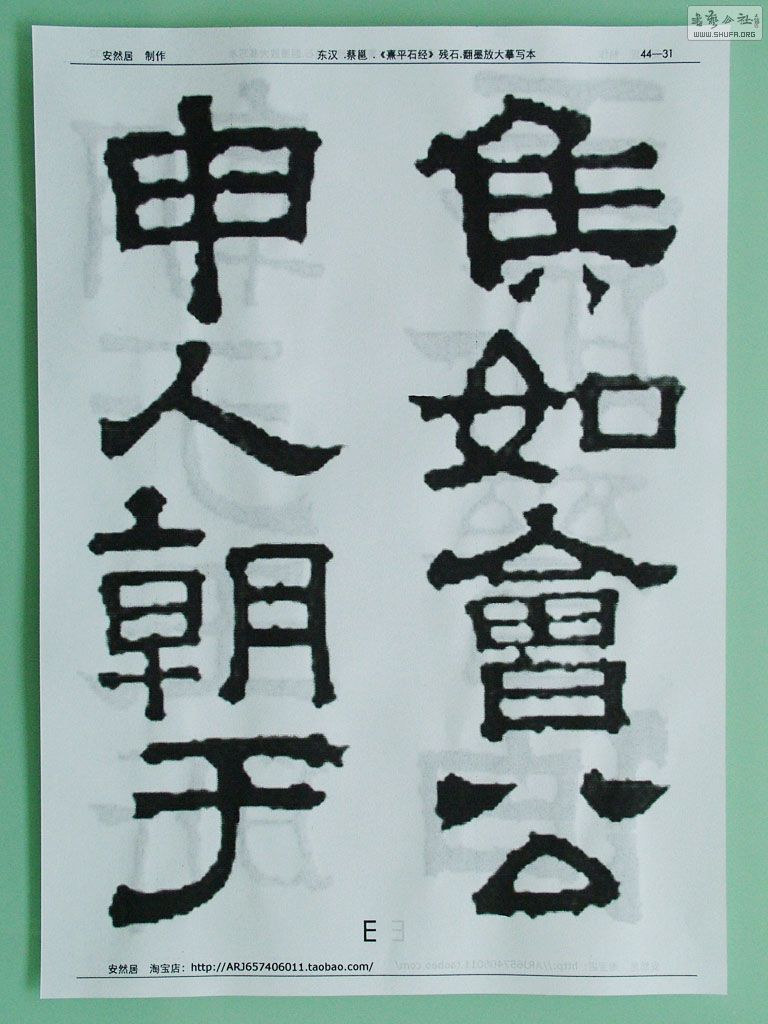 WWW.SHUFA.ORG
安然居 制作 东汉 .蔡邕 .《熹平石经》残石.翻墨放大摹写本 44—31
如會公
申人朝于
E
安然居 淘宝店: http://ARJ657406011.taobao.com/